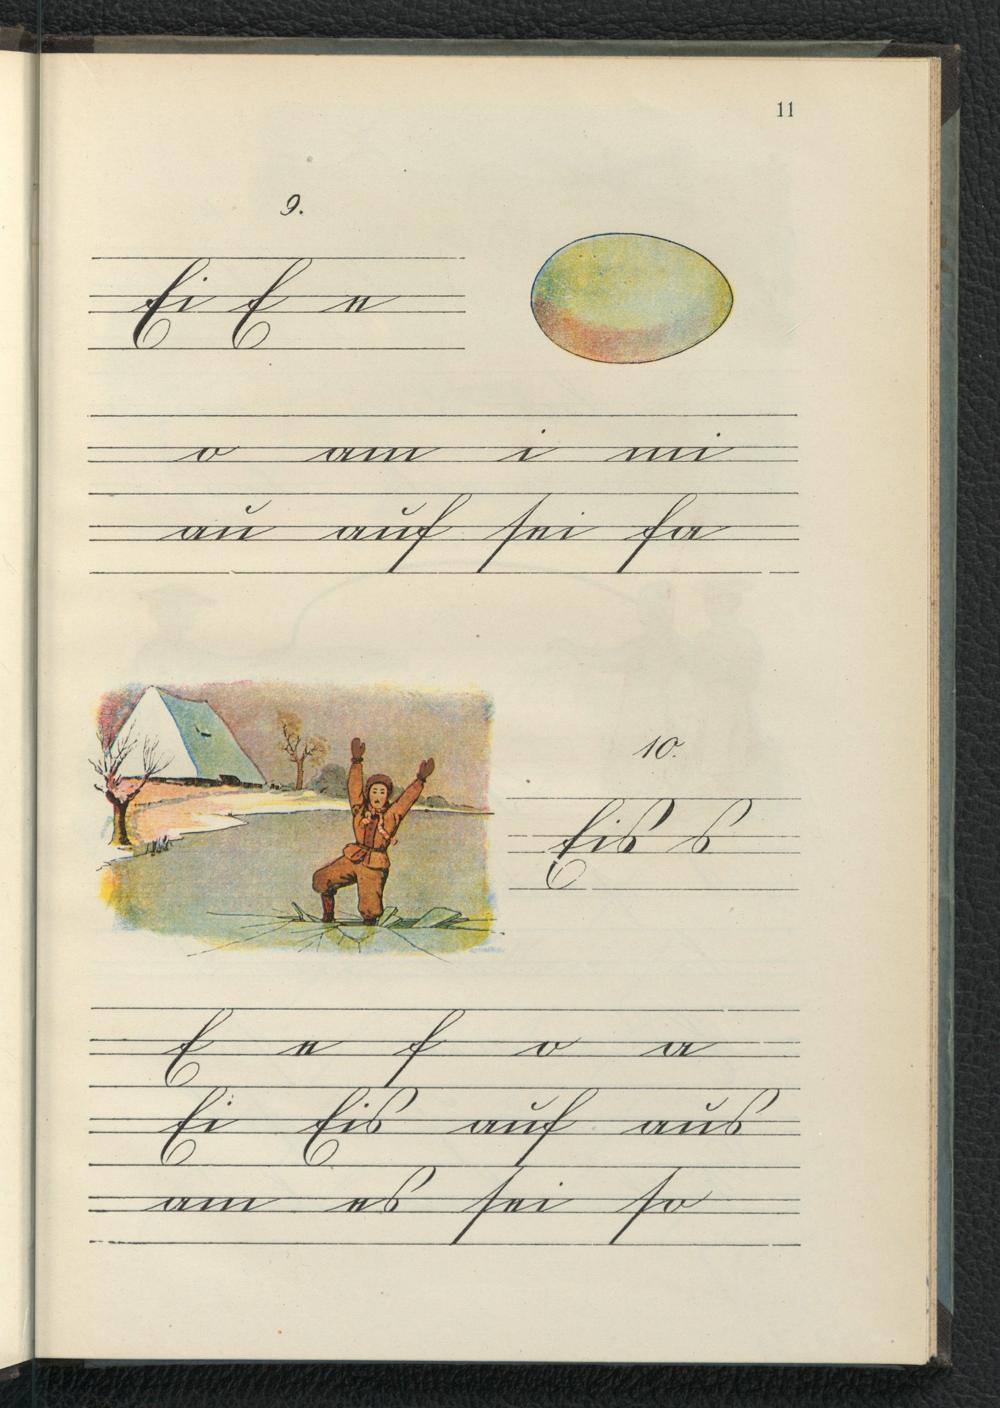 11
9.
Ei E e
o am i mi
au auf sei fa
10.
Eis s
E e f o a
Ei Eis auf aus
am es sei so